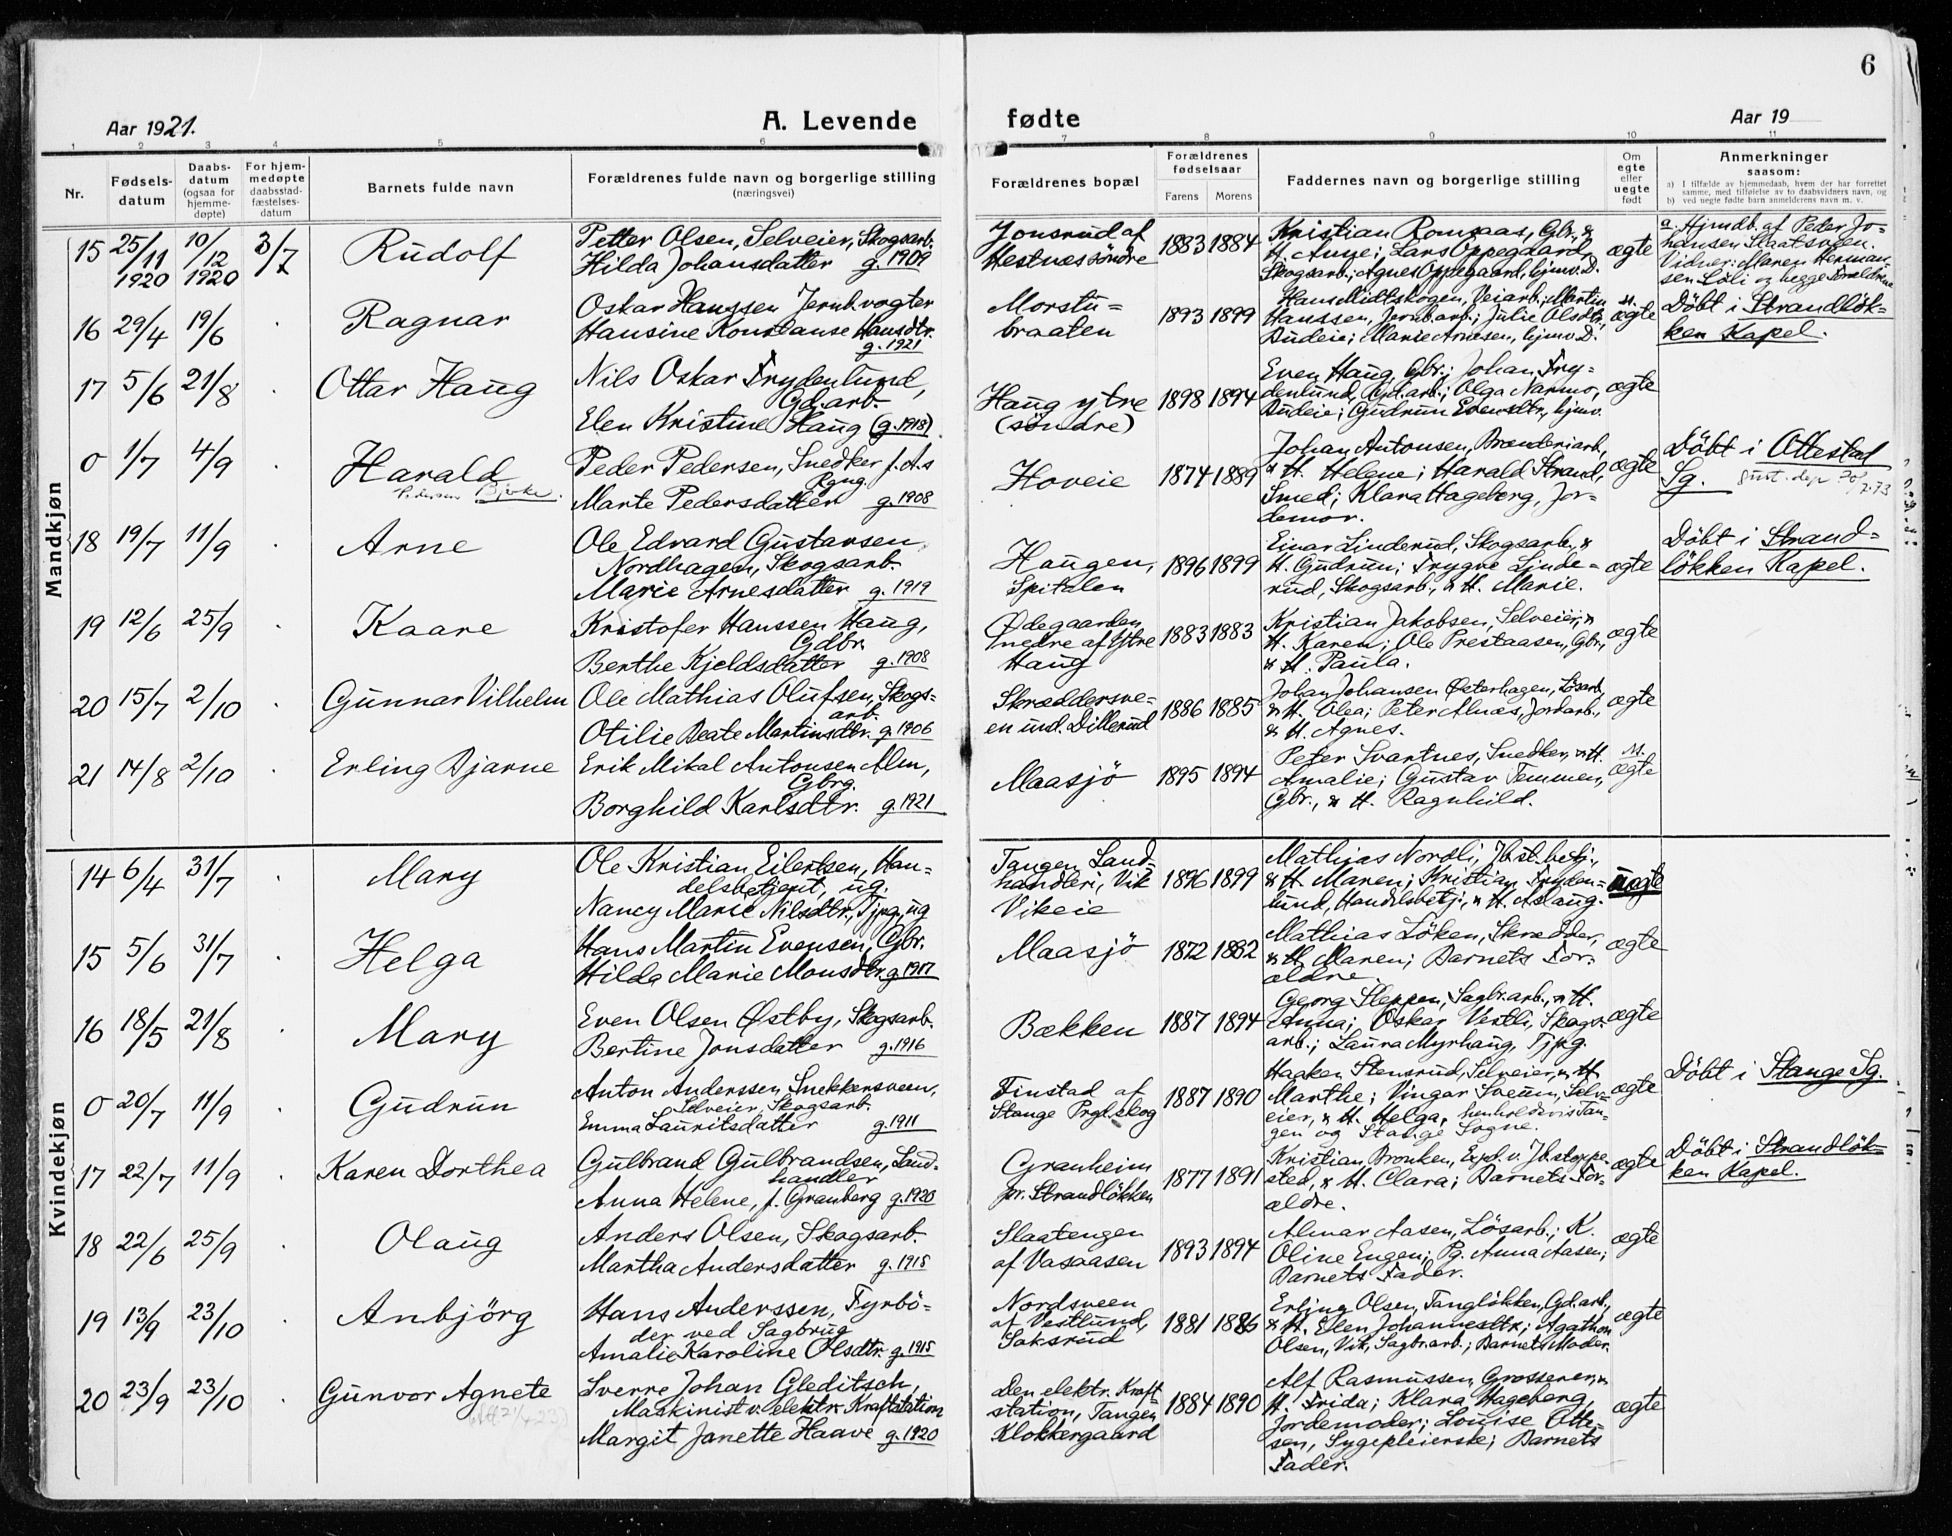 6
Aar 1921.
A. Levende
fødte
Aar 19
1 2 3 4 5 6 7 8 9 10 11
Nr.
Fødsels-
datum
Daabs-
datum
(ogsaa for
hjemme-
døpte)
For hjem-
medøpte
daabsstad-
fæstelses-
datum
Barnets fulde navn
Forældrenes fulde navn og borgerlige stilling
(næringsvei)
Forældrenes bopæl
Forældrenes
fødselsaar
Farens Morens
Faddernes navn og borgerlige stilling
Om
egte
eller
uegte
født
Anmerkninger
saasom:
a) I tilfælde av hjemmedaab, hvem der har forrettet
samme, med tilføielse av to daabsvidners navn, og
b) ved uegte fødte barn anmelderens navn m. v.
Mandkjøn
15 25/11 1920 10/12 1920 3/7 Rudolf
Petter Olsen, Selveier, Skogsarb.
Hilda Johansdatter g. 1909
Jonsrud af
Hestnæs söndre
1883 1884
Kristian Romsaas, Gbr., &
H. Anne; Lars Oppegaard,
Skogsarb.; Agnes Oppegaard, hjmv. D.
ægte
a. Hjmdb. af Peder Jo-
hansen Slaatsveen.
Vidner: Maren Herman-
sen Löli og begge Forældrene
16 29/4 19/6 Ragnar
Oskar Hanssen Jernb.vogter
Hansine Konstanse Hansdtr.
g. 1921
Morstu-
braaten
1893 1899
Hans Midtskogen, Veiarb.; Martin
Hanssen, Jernb.arb.; Julie Olsdtr.,
Budeie; Marie Arnesen, hjmv. D.
ægte
Döbt i Strandlök-
ken Kapel.
17 5/6 21/8 Ottar Haug
Nils Oskar Frydenlund,
Gd.arb.
Elen Kristine Haug (g. 1918)
Haug ytre
(söndre)
1898 1894
Even Haug, Gbr.; Johan Fry-
denlund, Gd.arb.; Olga Narmo,
Budeie; Gudrun Evensdtr., hjmv.
ægte
0 1/7 4/9 Harald
Pedersen Bjerke.
Peder Pedersen, Snedker f. A.s
Marte Pedersdatter g. 1908
Hoveie
1874 1889
Johan Antonsen, Brænderiarb.,
& H. Helene; Harald Strand,
Smed; Klara Hageberg, Jor-
demor.
ægte
Döbt i Ottestad
Sg.
18 19/7 11/9 Arne
Ole Edvard Gustavsen
Nordhagen, Skogsarb.
Marie Arnesdatter g. 1919
Haugen,
Spitalen
1896 1899
Einar Linderud, Skogsarb., &
H. Gudrun; Trygve Linde-
rud, Skogsarb., & H. Marie.
ægte
Döbt i Strand-
lökken Kapel.
19 12/6 25/9 Kaare
Kristofer Hanssen Haug,
Gdbr.
Berthe Kjeldsdatter g. 1908
Ødegaarden
nedre af Ytre
Haug
1883 1883
Kristian Jakobsen, Selveier, &
H. Karen; Ole Prestaasen, Gbr.,
& H. Paula.
ægte
20 15/7 2/10 Gunnar Vilhelm
Ole Mathias Olufsen, Skogs-
arb.
Otilie Beate Martinsdtr. g. 1906
Skræddersve-
en und. Dillerud
1886 1885
Johan Johansen Østerhagen, Lösarb.,
& H. Olea; Peter Alnæs, Jordarb.,
& H. Agnes.
ægte
21 14/8 2/10 Erling Bjarne
Erik Mikal Antonsen Alm,
Gbrg.
Borghild Karlsdtr. g. 1921
Maasjö
1895 1894
Peter Svartnes, Snedker, & H.
Amalie; Gustav Temmen,
Gbr., & H. Ragnhild.
ægte
Kvindekjøn
14 6/4 31/7 Mary
Ole Kristian Eilertsen, Han-
delsbetjent, ug.
Nancy Marie Nilsdtr., Tjpg., ug
Tangen Land-
handleri, Vik
Vikeie
1896 1899
Mathias Nordli, Jb.st.betj.,
& H. Maren; Kristian Fryden-
lund, Handelsbetj., & H. Aslaug.
uægte
15 5/6 31/7 Helga
Hans Martin Evensen, Gbr.
Hilda Marie Monsdtr. g. 1917
Maasjö
1872 1882
Mathias Löken, Skrædder,
& H. Maren; Barnets For-
ældre.
ægte
16 18/5 21/8 Mary
Even Olsen Østby, Skogsarb.
Bertine Jonsdatter g. 1916
Bækken
1887 1894
Georg Sleppen, Sagbr.arb., & H.
Anna; Oskar Vestli, Skogs-
arb.; Laura Myrhaug, Tjpg.
ægte
0 20/7 11/9 Gudrun
Anton Anderssen Snekkersveen,
Selveier, Skogsarb.
Emma Lauritsdatter g. 1911
Finstad af
Stange Prgl.skog
1887 1890
Haaken Stensrud, Selveier, & H
Marthe; Vingar Sveum, Selv-
eier, & H. Helga, henholdsvis Tan-
gen og Stange Sogne.
ægte
Döbt i Stange Sg.
17 22/7 11/9 Karen Dorthea
Gulbrand Gulbrandsen, Land-
handler
Anna Helene, f. Granberg g. 1920
Granheim
pr. Strandlökken
1877 1891
Kristian Bronken, Exp. v. Jb.stoppe-
sted, & H. Clara; Barnets For-
ældre.
ægte
Döbt i Strandlök-
ken Kapel.
18 22/6 25/9 Olaug
Anders Olsen, Skogsarb.
Martha Andersdatter g. 1918
Slaatengen
af Vasaasen
1893 1894
Almar Aasen, Lösarb.; K.
Oline Engen; Pg. Anna Aasen;
Barnets Fader.
ægte
19 13/9 23/10 Anbjörg
Hans Anderssen, Fyrbö-
der ved Sagbrug
Amalie Karoline Olsdtr. g. 1915
Nordsveen
af Vestlund,
Saksrud
1881 1886
Erling Olsen, Tangløkken, Gd.arb.,
& H. Elen Johannesdtr.; Agathon
Olsen, Vik, Sagbr.arb.; Barnets Moder.
ægte
20 23/9 23/10 Gunvor Agnete
Sverre Johan Gleditsch,
Maskinist v. elektr. Kraftstation
Margit Janette Haave g. 1920
Den elektr. Kraft-
station, Tangen
Klokkergaard
1884 1890
Alf Rasmussen, Grosserer, &
H. Frida; Klara Hageberg,
Jordemoder; Louise Otte-
sen, Sygepleierske; Barnets
Fader.
ægte